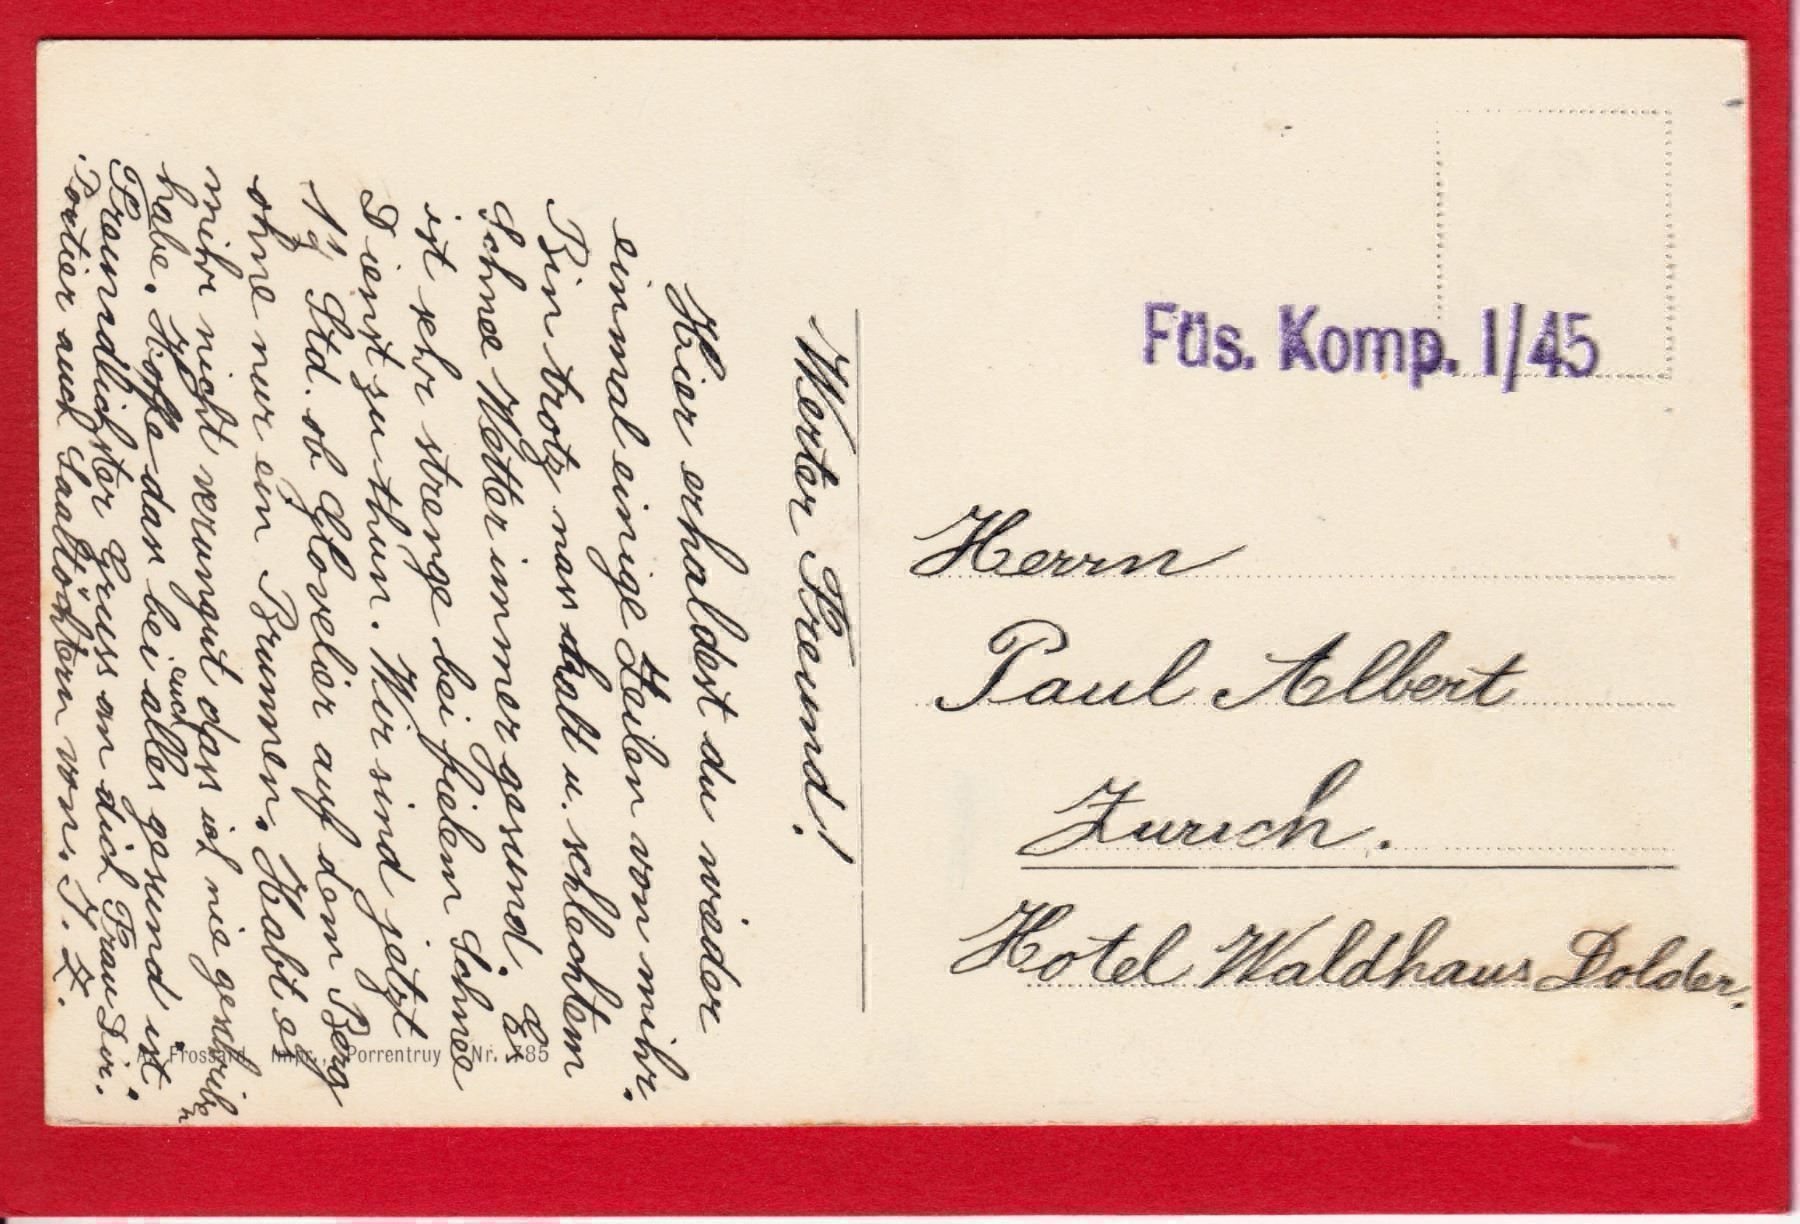 Werter Freund!
Hier erhaldest du wieder
einmal einige Zeilen von mihr.
Bin trotz nas kalt u. schlechtem
Schnee Wetter immer gesund. Es
ist sehr strenge bei fielem Schnee
Dienst zu thun. Wir sind jetzt
1½ Std. ob Glovelier auf dem Berg
ohne nur ein Brunnen. Habt es
mihr nicht verungut dass ich nie geschriben
habe. Hoffe das bei euch alles gesund ist.
Freundlichster Gruss an dich Frau Dir.
Portier auch Saaltöchtern von. J. Z.
A. Frossard, Impr., Porrentruy Nr. 785
Füs. Komp. I/45
Herrn
Paul Albert
Zurich.
Hotel Waldhaus Dolder.